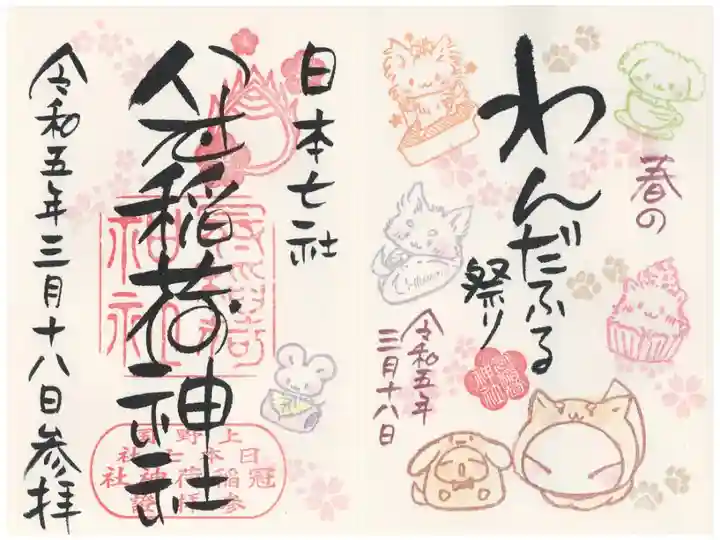 春の
わんだふる
祭り
令和五年
三月十八日
日本七社
冠稲荷神社
令和五年三月十八日参拝
上野國
日本七社
冠稲荷神社